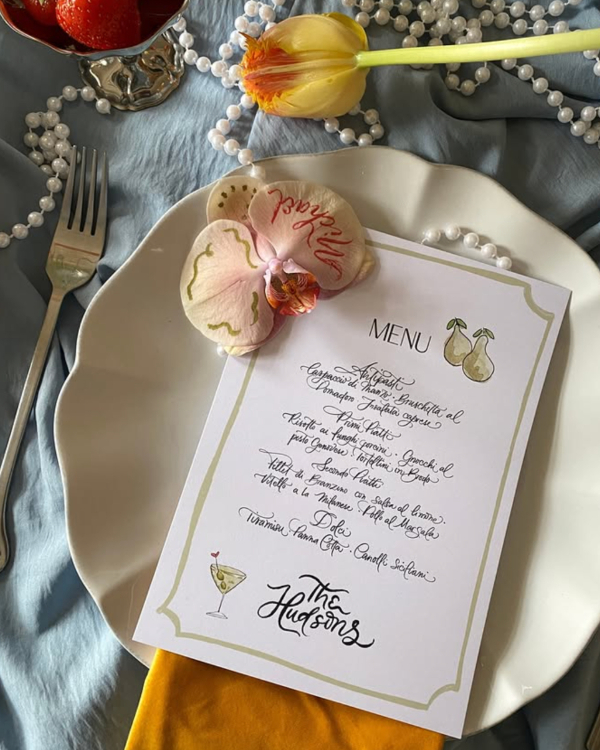 Michael
MENU
Antipasti
Carpaccio di Manzo · Bruschetta al
Pomodoro · Insalata caprese
Primi Piatti
Risotto ai funghi porcini · Gnocchi al
pesto Genovese · Tortellini in Brodo
Secondo Piatto
Fillet di Branzino con salsa al limone ·
Vitello a la Milanese · Pollo al Marsala
Dolci
Tiramisu · Panna Cotta · Canolli Siciliani
The
Hudsons